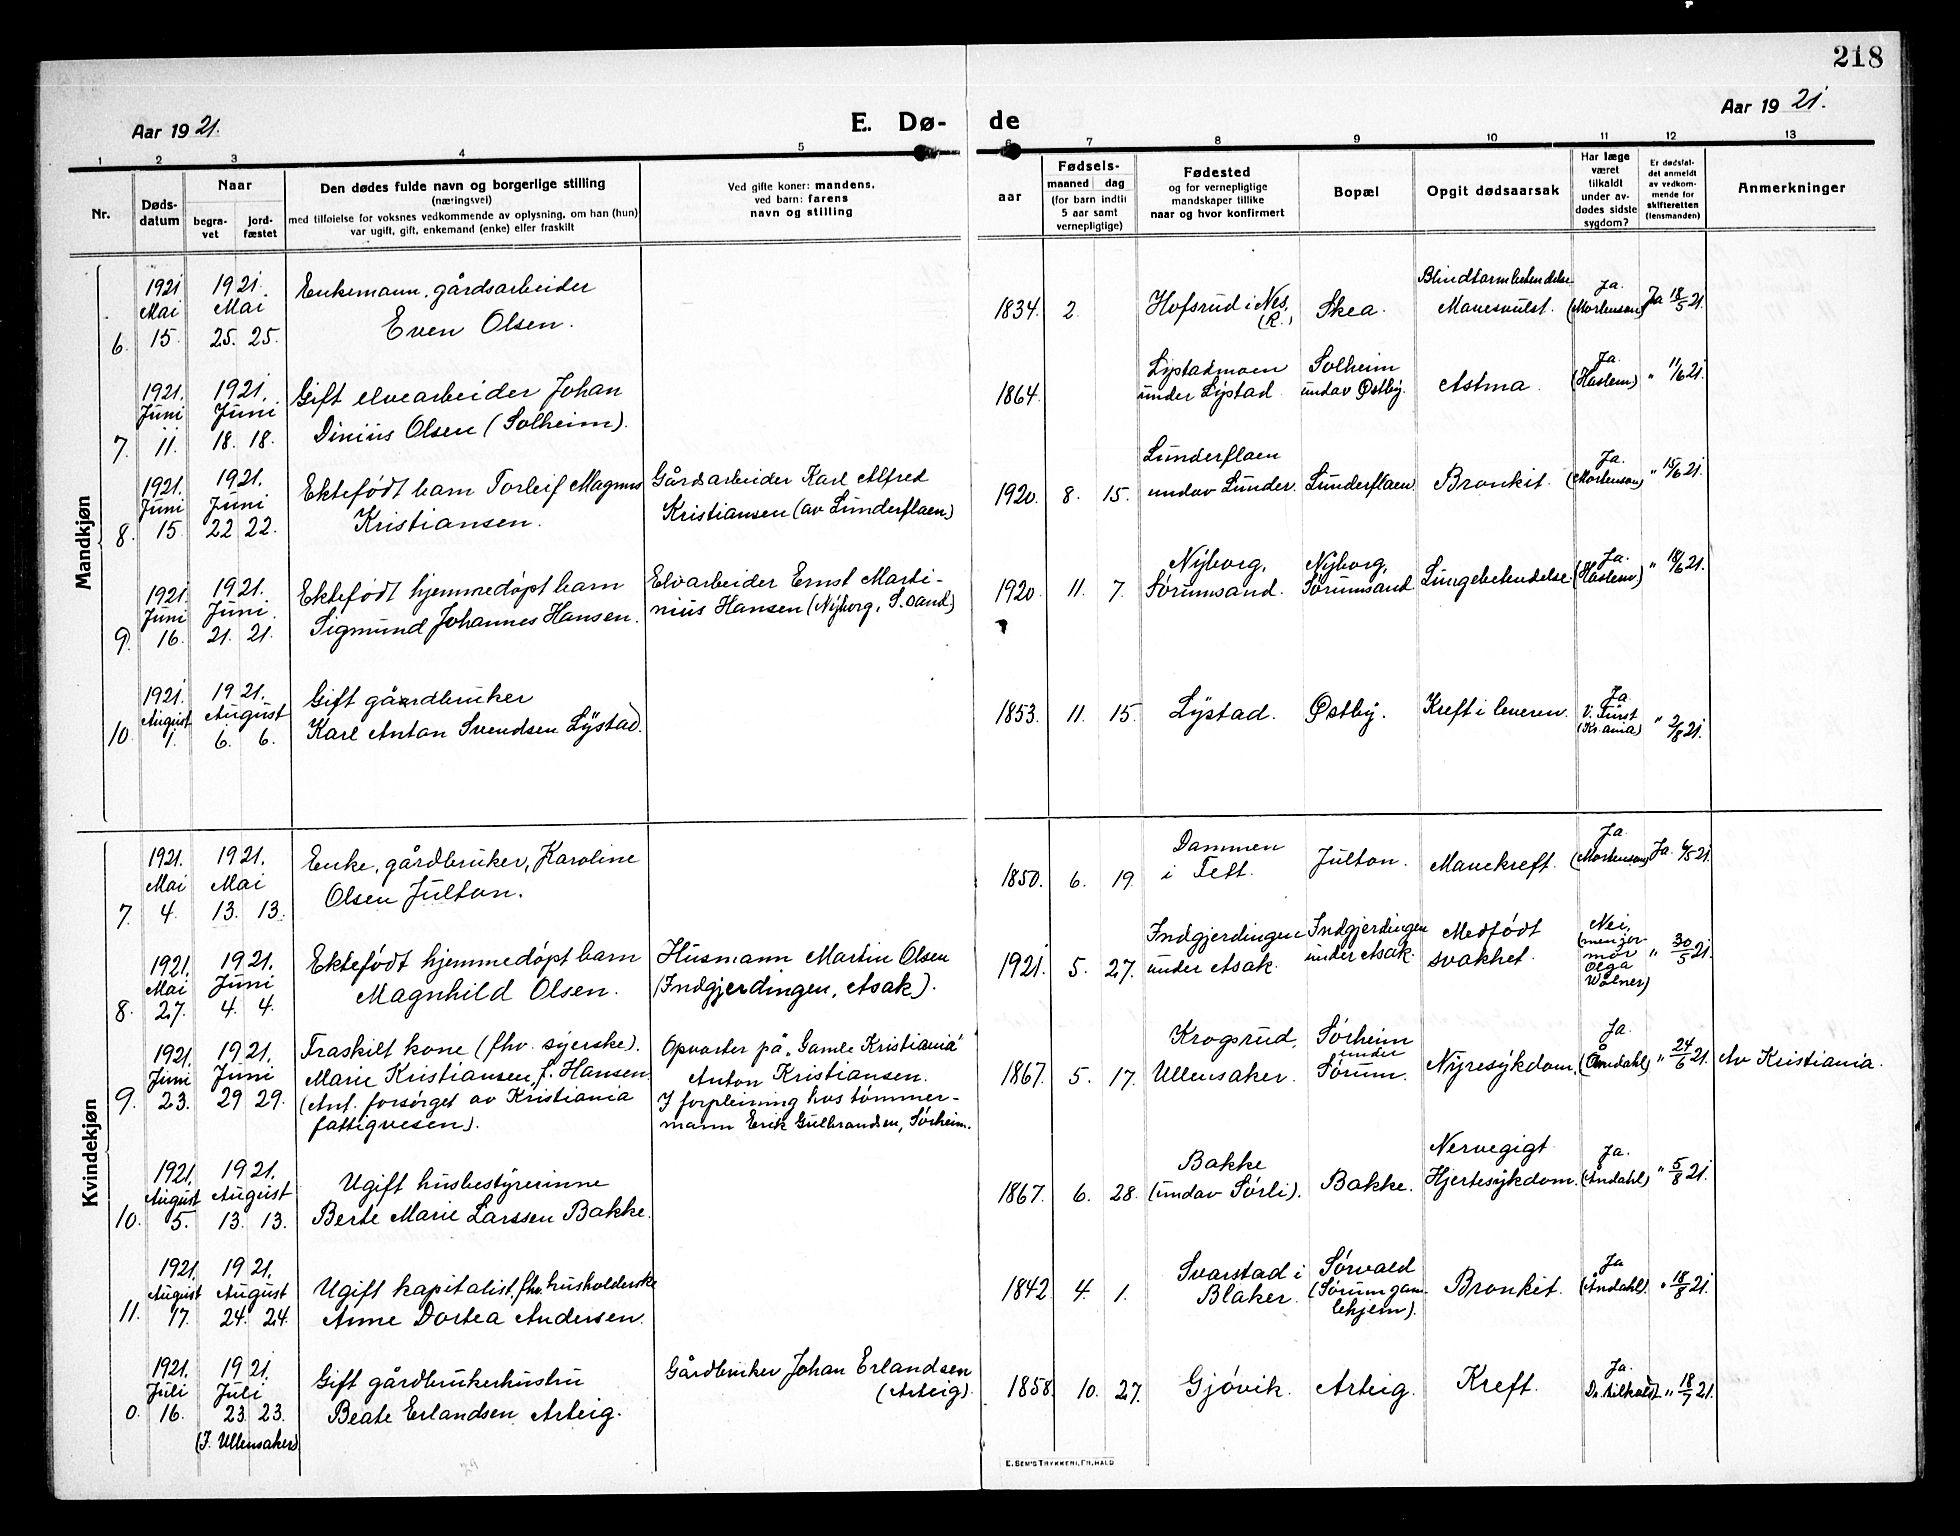 218
Aar 1921.
E. Dø-
de
Aar 1921.
1 2 3 4 5 6 7 8 9 10 11 12 13
Nr.
Døds-
datum
Naar
begra-
vet
jord-
fæstet
Den dødes fulde navn og borgerlige stilling
(næringsvei)
med tilføielse for voksnes vedkommende av oplysning, om han (hun)
var ugift, gift, enkemand (enke) eller fraskilt
Ved gifte koner: mandens,
ved barn: farens
navn og stilling
aar
Fødsels-
maaned dag
(for barn indtil
5 aar samt
vernepligtige)
Fødested
og for vernepligtige
mandskaper tillike
naar og hvor konfirmert
Bopæl
Opgit dødsaarsak
Har læge
været
tilkaldt
under av-
dødes sidste
sygdom?
Er dødsfal-
det anmeldt
av vedkom-
mende for
skifteretten
(lensmanden)
Anmerkninger
Mandkjøn
6.
1921
Mai
15.
1921.
Mai
25. 25.
Enkemann, gårdsarbeider
Even Olsen.
1834. 2.
Hofsrud i Nes,
(R.)
Skea.
Blindtarmbetendelse
Mavesvulst.
Ja.
(Mortenson)
Ja 18/5 21.
7.
1921.
Juni
11.
1921.
Juni
18. 18.
Gift elvearbeider Johan
Dinius Olsen (Solheim).
1864.
Lystadmoen
under Lystad.
Solheim
undav Østby.
Astma.
Ja.
(Haslem)
" 11/6 21.
8.
1921.
Juni
15.
1921.
Juni
22 22.
Ektefødt barn Torleif Magnus
Kristiansen.
Gårdsarbeider Karl Alfred
Kristiansen (av Lunderflaen)
1920. 8. 15.
Lunderflaen
undav Lunder.
Lunderflaen.
Bronkit.
Ja.
(Mortenson)
" 15/6 21.
9.
1921.
Juni
16.
1921.
Juni.
21. 21.
Ektefødt hjemmedøpt barn
Sigmund Johannes Hansen.
Elvarbeider Ernst Marti-
nius Hansen (Nyborg, S.sand)
1920. 11. 7.
Nyborg,
Sørumsand.
Nyborg,
Sørumsand
Lungebetendelse.
Ja.
(Haslem)
" 18/6 21.
10.
1921.
August
1.
1921.
August
6. 6.
Gift gårdbruker
Karl Anton Svendsen Lystad.
1853. 11. 15.
Lystad.
Østby.
Kreft i leveren.
Ja
V. Fürst
(Kr.ania)
" 2/8 21.
Kvindekjøn
7.
1921.
Mai
4.
1921.
Mai
13. 13.
Enke, gårdbruker, Karoline
Olsen Julton.
1850. 6. 19.
Dammen
i Fett.
Julton.
Mavekreft.
Ja.
(Mortenson)
Ja. 6/5 21.
8.
1921.
Mai
27.
1921.
Juni
4. 4.
Ektefødt hjemmedøpt barn
Magnhild Olsen.
Husmann Martin Olsen
(Indgjerdingen, Asak).
1921. 5. 27.
Indgjerdingen
under Asak.
Indgjerdingen
under Asak.
Medfødt
svakhet.
Nei,
mor
Olga
" 30/5 21.
9.
1921.
Juni
23.
1921.
Juni
29 29.
Fraskilt kone (fhv. syerske).
Marie Kristiansen, f. Hansen.
(Ant. forsørget av Kristiania
fattigvesen).
Opvarter på "Gamle Kristiania"
Anton Kristiansen.
I forpleining hos tømmer-
mann Erik Gulbrandsen, Sørheim.
1867. 5. 17.
Krogsrud,
Ullensaker.
Sørheim
under
Sørum.
Nyresykdom.
Ja.
(Åndahl)
" 24/6 21.
Av Kristiania.
10.
1921.
August
5.
1921.
August
13. 13.
Ugift husbestyrerinne
Berte Marie Larssen Bakke.
1867. 6. 28.
Bakke
(undav Sørli).
Bakke.
Nervegigt
Hjertesykdom.
Ja.
(Åndahl)
" 5/8 21.
11.
1921.
August
17.
1921.
August
24. 24.
Ugift kapitalist, fhv. husholderske
Anne Dortea Andersen.
1842 4. 1.
Svarstad i
Blaker.
Sørvald
(Sørum gam-
lehjem).
Bronkit.
Ja
(Åndahl).
" 18/8 21.
0.
1921.
Juli
16.
1921.
Juli
23. 23.
(I. Ullensaker)
Gift gårdbrukerhustru
Beate Erlandsen Arteig.
Gårdbruker Johan Erlandsen
(Arteig).
1858. 10. 27.
Gjøvik.
Arteig.
Kreft.
Ja.
Dr. tilkaldt
" 18/7 21.
E. SEM'S TRYKKERI, FR.HALD